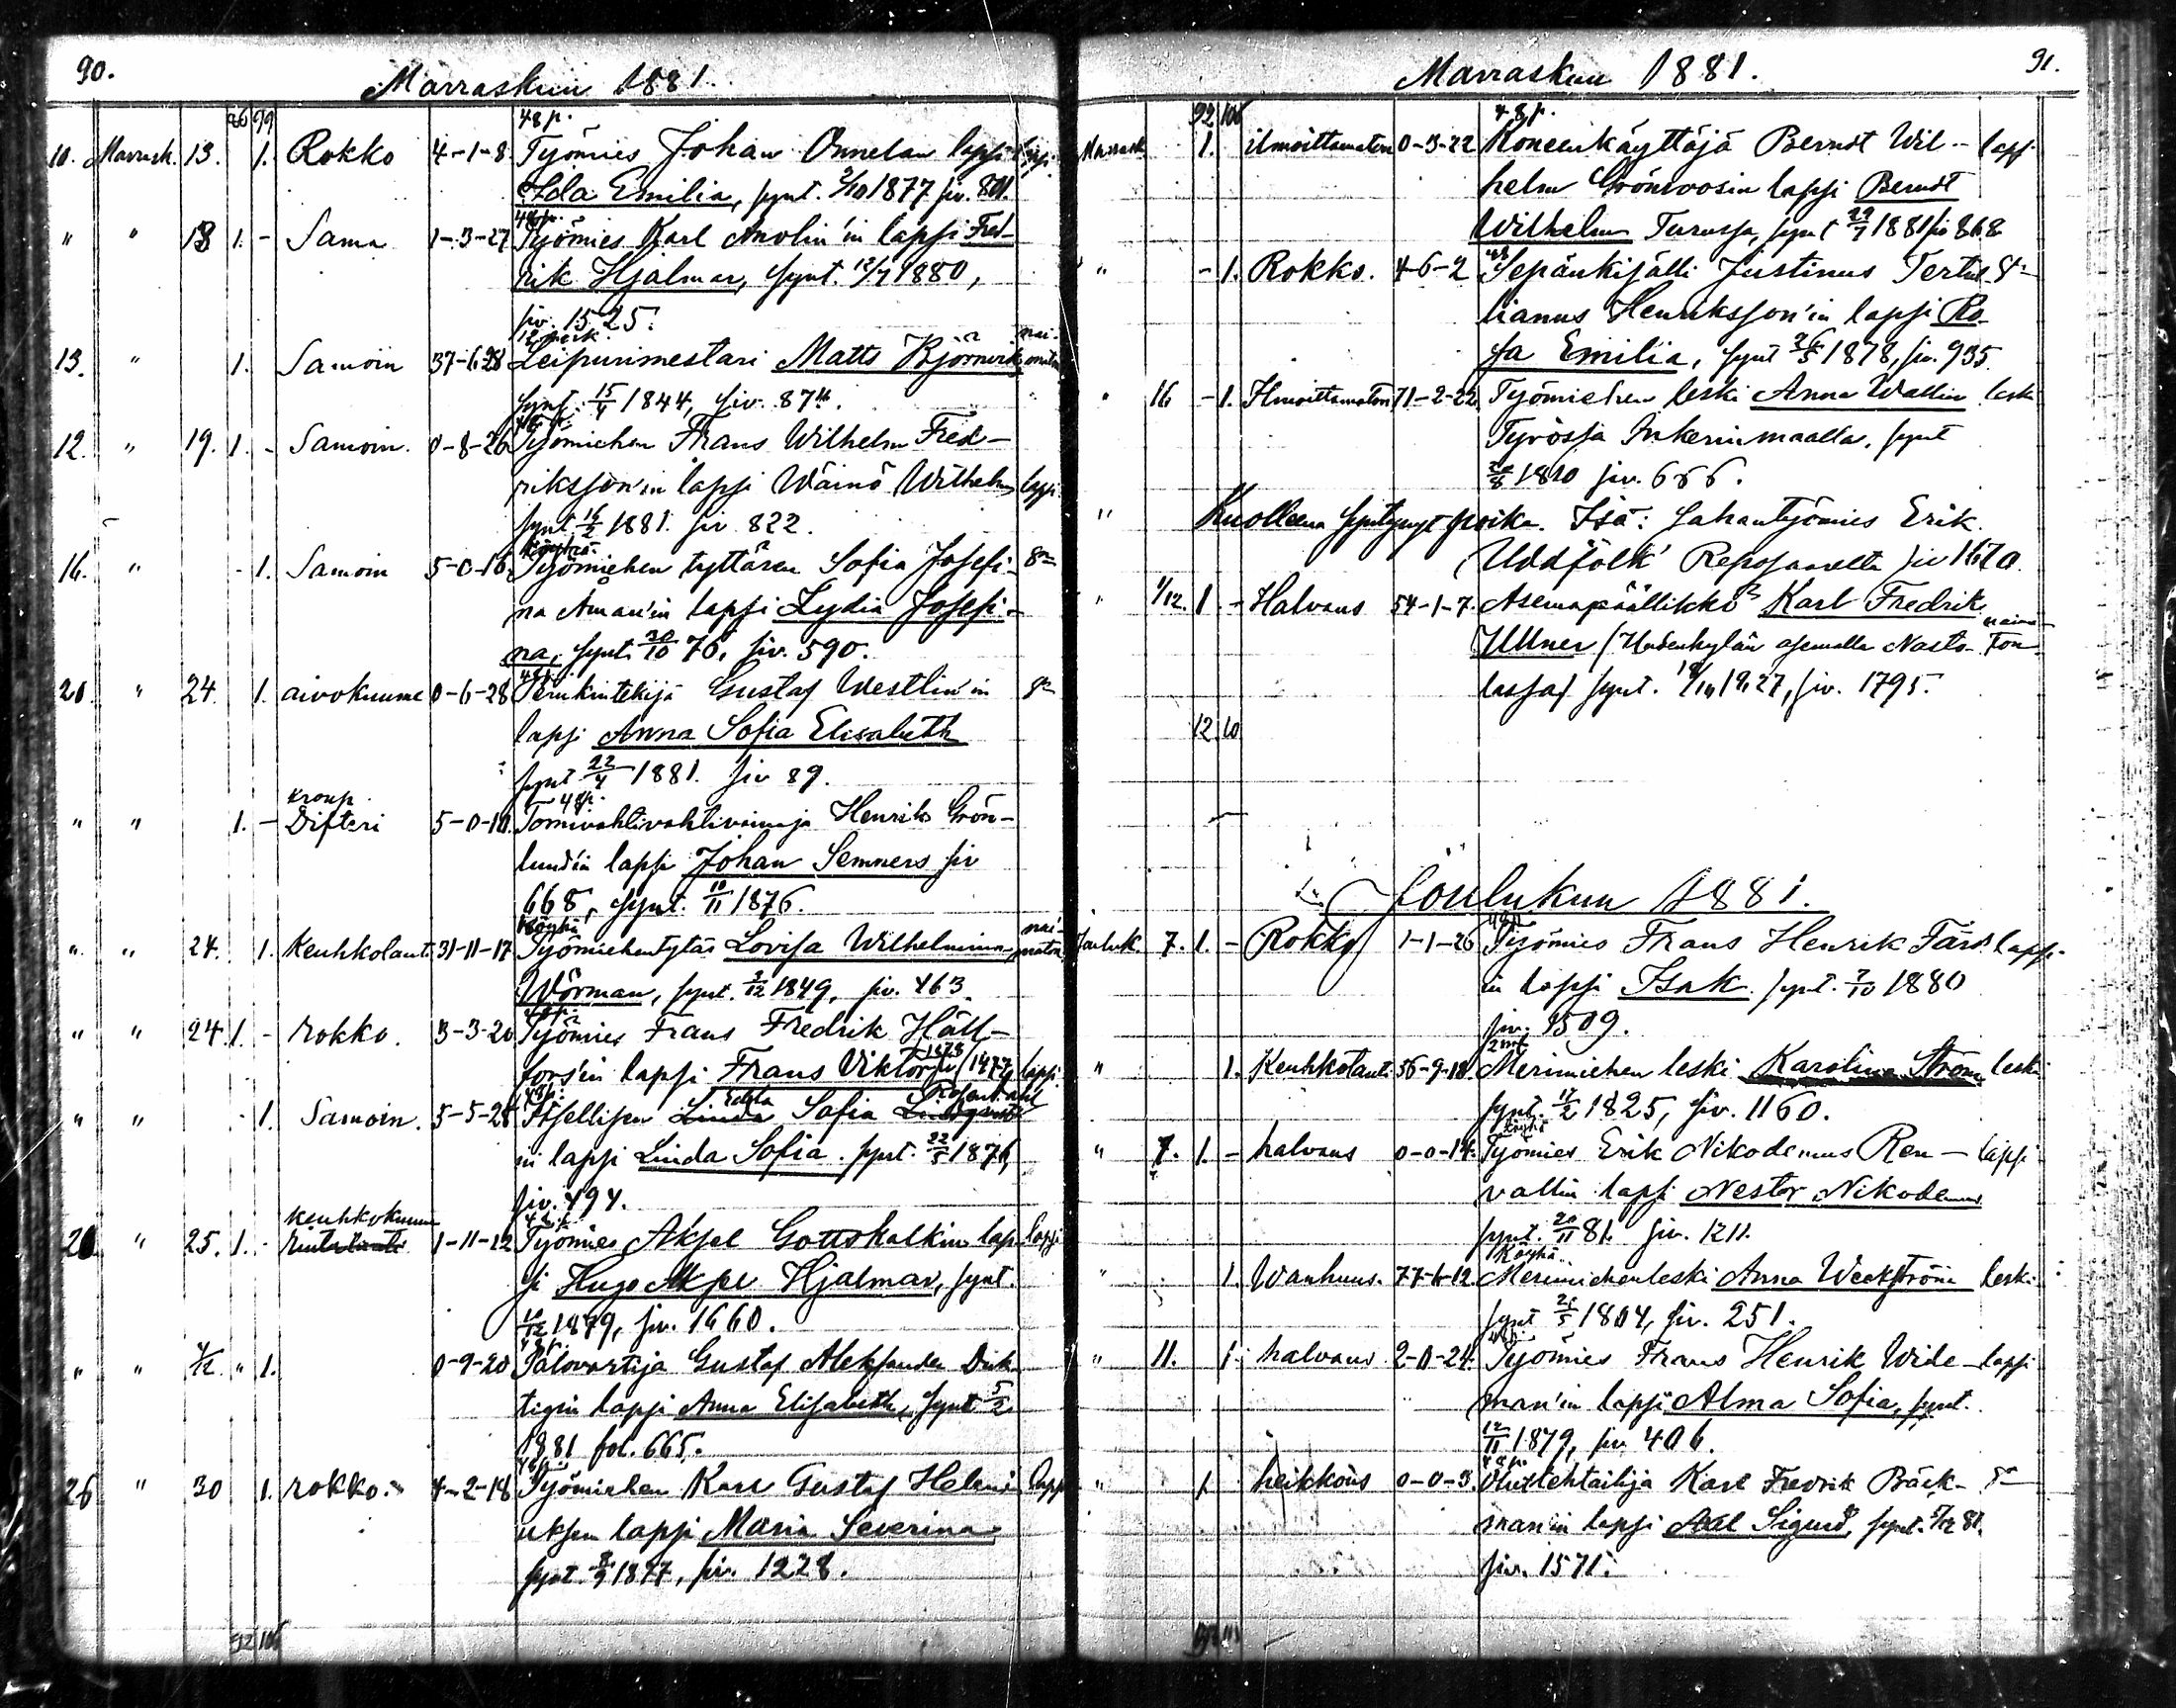 90.
Marraskuu 1881.
86 99
48 p.
10. Marrask. 13. 1. Rokko 4-1-8 Työmies Johan Onnelan lapsi lapsi
Ida Emilia, synt. 2/10 1877 siv. 801.
48 p.
" " 18 1. - Sama 1-3-27 Työmies Karl Anolin'in lapsi Fred-
rik Hjalmar, synt. 12/7 1880,
siv. 1525.
13. " 1. Samoin 37-6-28 Leipurimestari Matts Björnvik
synt. 15/4 1844, siv. 874.
12. " 19. 1. - Samoin. 0-8-26 Työmiehen Frans Wilhelm Fred-
riksson'in lapsi Wäinö Wilhelm lapsi
synt. 16/2 1881. siv 822.
16. " - 1. Samoin 5-0-16. Työmiehen tyttären Sofia Josefi-
na Åman'in lapsi Lydia Josefi-
na, synt. 30/10 76, siv. 590.
20. " 24. 1. aivokuume 0-6-28 Perukintekijä Gustaf Westlin'in
lapsi Anna Sofia Elisabeth
synt 22/4 1881. siv 89.
kroup 48 p.
" " 1. - Difteri 5-0-10. Tornivahtivahtivaimaja Henrik Grön-
lund'in lapsi Johan Semners siv
668, synt. 10/11 1876.
Köyhä
" " 24. 1. Keuhkotauti 31-11-17 Työmiehentytär Lovisa Wilhelmina
Wörman, synt. 3/12 1849, siv. 463.
" " 24 1. - rokko. 3-3-20 Työmies Frans Fredrik Häll-
fors'in lapsi Frans Viktor siv 1477 lapsi
" " - 1. Samoin. 5-5-28 Itsellisen Linda Sofia
in lapsi Linda Sofia. synt. 22/5 1876,
siv. 494.
keuhkokuume
20 " 25. 1. - 1-11-12 Työmies Aksel Gottskalkin lap- lapsi
si Hugo Aksel Hjalmar, synt.
1879, siv. 1660.
" " " 1. 0-9-20 Palovartija Gustaf Aleksander Duk-
tigin lapsi Anna Elisabeth, synt 5/2
1881 fol. 665.
26 " 30 1. rokko. 4-2-18 Työmiehen Karl Gustaf Heleni-
uksen lapsi Maria Severina
synt. 8/9 1877, siv. 1228.
Marraskuu 1881. 91.
92 106
48 p.
Marrask. 1. ilmoittamaton 0-3-22 Koneenkäyttäjä Berndt Wil- lapsi
helm Grönroosin lapsi Berndt
Wilhelm Turussa, synt 29/7 1881 siv 868
" - 1. Rokko. 4-6-2 Sepänkisälli Justinus Tertul-
lianus Henriksson'in lapsi Ro-
sa Emilia, synt 26/5 1878, siv. 935.
" 16 - 1. Ilmoittamaton 71-2-22. Työmiehen leski Anna Wallin leski
Tyrössä Inkerinmaalla, synt
1810 siv. 656.
" Kuolleena syntynyt poika. Isä: Sahantyömies Erik
Uddfolk Reposaarelta siv 1670.
" 1/12. 1 - Halvaus 54-1-7. Asemapäällikkö Karl Fredrik
Ullner (Uudenkylän asemalla Nasto-
lassa) synt. 1827, siv. 1795.
12 10
Joulukuu 1881.
48 p.
Jouluk. 7. 1. - Rokko 1-1-26 Työmies Frans Henrik Färd- lapsi
in lapsi Isak. synt. 7/10 1880
siv. 1509.
" 1. Keuhkotauti 56-9-18. Merimiehen leski Karolina Ström leski
synt. 1825, siv. 1160.
Köyhä
" 7. 1. - halvaus 0-0-14. Työmies Erik Nikodemus Ren- lapsi
vallin lapsi Nestor Nikodemus
synt. 20/11 81. siv. 1211.
Köyhä
" 1. Wanhuus. 77-6-12. Merimiehenleski Anna Weckström leski
synt 1804, siv. 251.
" 11. 1 halvaus 2-0-24. Työmies Frans Henrik Wide- lapsi
man'in lapsi Alma Sofia, synt.
12/11 1879, siv. 406.
" 1 heikkous 0-0-3. Oluttehtailija Karl Fredrik Bäck-
man'in lapsi Axel Sigurd, synt. 5/12 81.
siv. 1571.